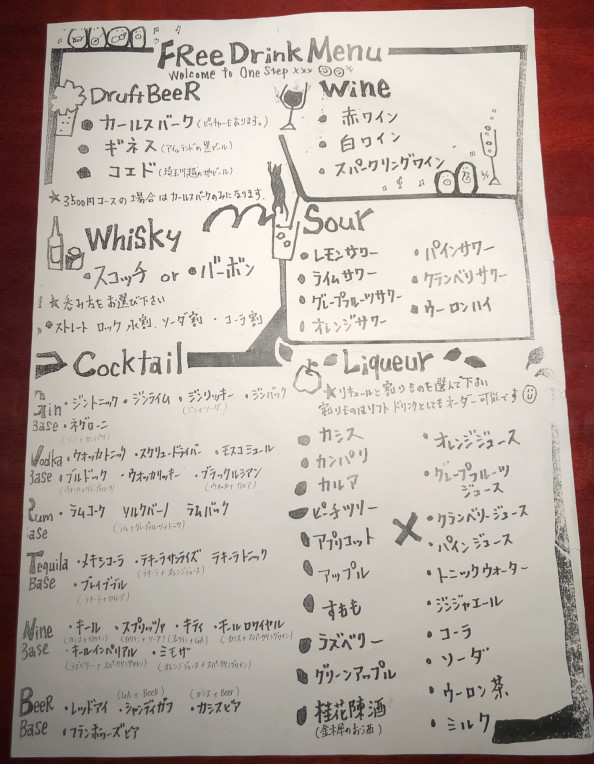 FRee Drink Menu
Welcome to One Step xxx
Druft BeeR
カールスバーク (ピッチャーもあります。)
ギネス (アイルランドの黒ビール)
コエド
★3500円コースの場合はカールスバークのみになります。
Wine
赤ワイン
白ワイン
スパークリングワイン
Whisky
スコッチ or バーボン
★呑み方をお選び下さい
ストレート ロック 水割. ソーダ割・コーラ割
Sour
レモンサワー
ライムサワー
グレープフルーツサワー
オレンジサワー
パインサワー
クランベリサワー
ウーロンハイ
Cocktail
Gin Base
・ジントニック ・ジンライム ・ジンリッキー ・ジンバック
(ジン+ソーダ)
・ネグローニ
Vodka Base
・ウォッカトニック ・スクリュードライバー ・モスコミュール
・ブルドック ・ウォッカリッキー ・ブラックルシアン
(ウォッカ+カルア)
Rum Base
・ラムコーク ソルクバーノ ラムバック
Tequila Base
・メキシコーラ ・テキーラサンライズ テキーラトニック
(テキーラ+オレンジジュース)
・ブレイブブル
(テキーラ+カルア)
Wine Base
・キール ・スプリッツァ ・キティ ・キールロワイヤル
(カシス+スパークリングワイン)
・キールインペリアル ・ミモザ
(ラズベリー+スパークリングワイン) (オレンジジュース+スパークリングワイン)
BeeR Base
(カシス+Beer)
・レッドアイ ・シャンディガフ ・カシスビア
・フランボワーズビア
Liqueur
★リキュールと割りものを選んで下さい
割りものはソフトドリンクとしてもオーダー可能です
カシス
カンパリ
カルア
ピーチツリー
アプリコット
アップル
すもも
ラズベリー
グリーンアップル
桂花陳酒
(金木犀のお酒)
X
・オレンジジュース
・グレープフルーツ
ジュース
・クランベリージュース
・パインジュース
・トニックウォーター
・ジンジャエール
・コーラ
・ソーダ
・ウーロン茶
・ミルク